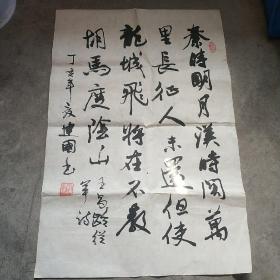 秦時明月漢時関萬
里長征人未還但使
龍城飛將在不教
胡馬度陰山王昌齡從
軍詩
丁亥年夏建國书